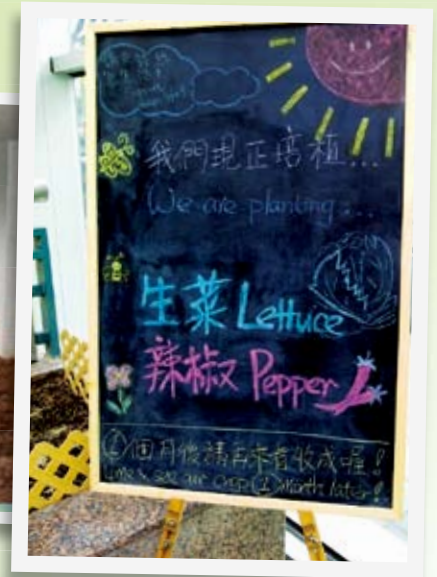 我們現正培植...
We are planting...
生菜 Lettuce
辣椒 Pepper
個月後請再來看收成喔!
see our crop month later!